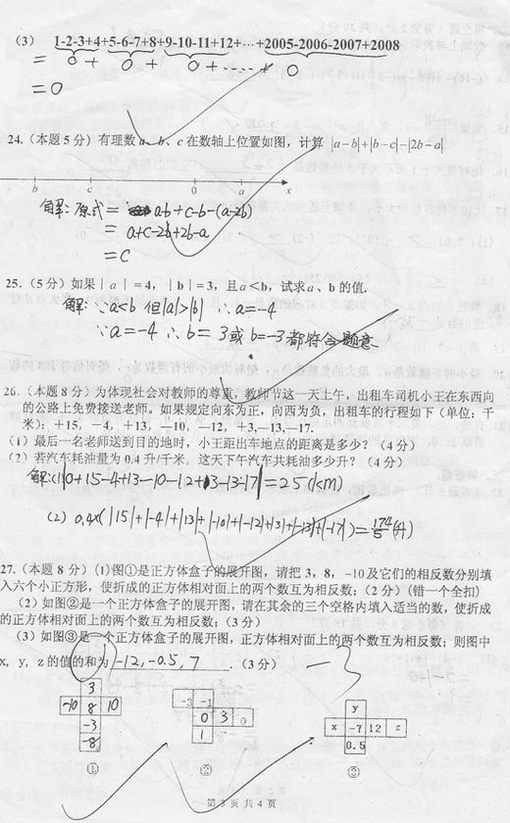 (3) 1-2-3+4+5-6-7+8+9-10-11+12+…+2005-2006-2007+2008
= 0 + 0 + 0 +……+ 0
=0
24.（本题5分）有理数a、b、c在数轴上位置如图，计算 |a-b|+|b-c|-|2b-a|
b c 0 a x
解：原式= a-b+c-b-(a-2b)
= a+c-2b+2b-a
=c
25.（5分）如果|a|=4，|b|=3，且a<b，试求a、b的值.
解：∵a<b 但|a|>|b| ∴a=-4
∵a=-4 ∴b= 3或b=-3都符合题意
26.（本题8分）为体现社会对教师的尊重，教师节这一天上午，出租车司机小王在东西向
的公路上免费接送老师。如果规定向东为正，向西为负，出租车的行程如下（单位：千
米）：+15，-4，+13，-10，-12，+3,-13,-17.
（1）最后一名老师送到目的地时，小王距出车地点的距离是多少？（4分）
（2）若汽车耗油量为0.4升/千米，这天下午汽车共耗油多少升？（4分）
解:(1)|0+15-4+13-10-12+3-13-17|=25(km)
(2) 0.4×(|15|+|-4|+|13|+|-10|+|-12|+|3|+|-13|+|-17|)=174/5(升)
27.（本题8分）(1)图①是正方体盒子的展开图，请把3，8，-10及它们的相反数分别填
入六个小正方形，使折成的正方体相对面上的两个数互为相反数；（2分）（错一个全扣）
（2）如图②是一个正方体盒子的展开图，请在其余的三个空格内填入适当的数，使折成
的正方体相对面上的两个数互为相反数；（3分）
（3）如图③是一个正方体盒子的展开图，正方体相对面上的两个数互为相反数；则图中
x，y，z的值的和为 -12,-0.5,7 .（3分） -3
3
-10 8 10
-3
-8
①
-3 -1
0 3 0
1
②
y
x -7 12 z
0.5
③
第 3 页 共 4 页